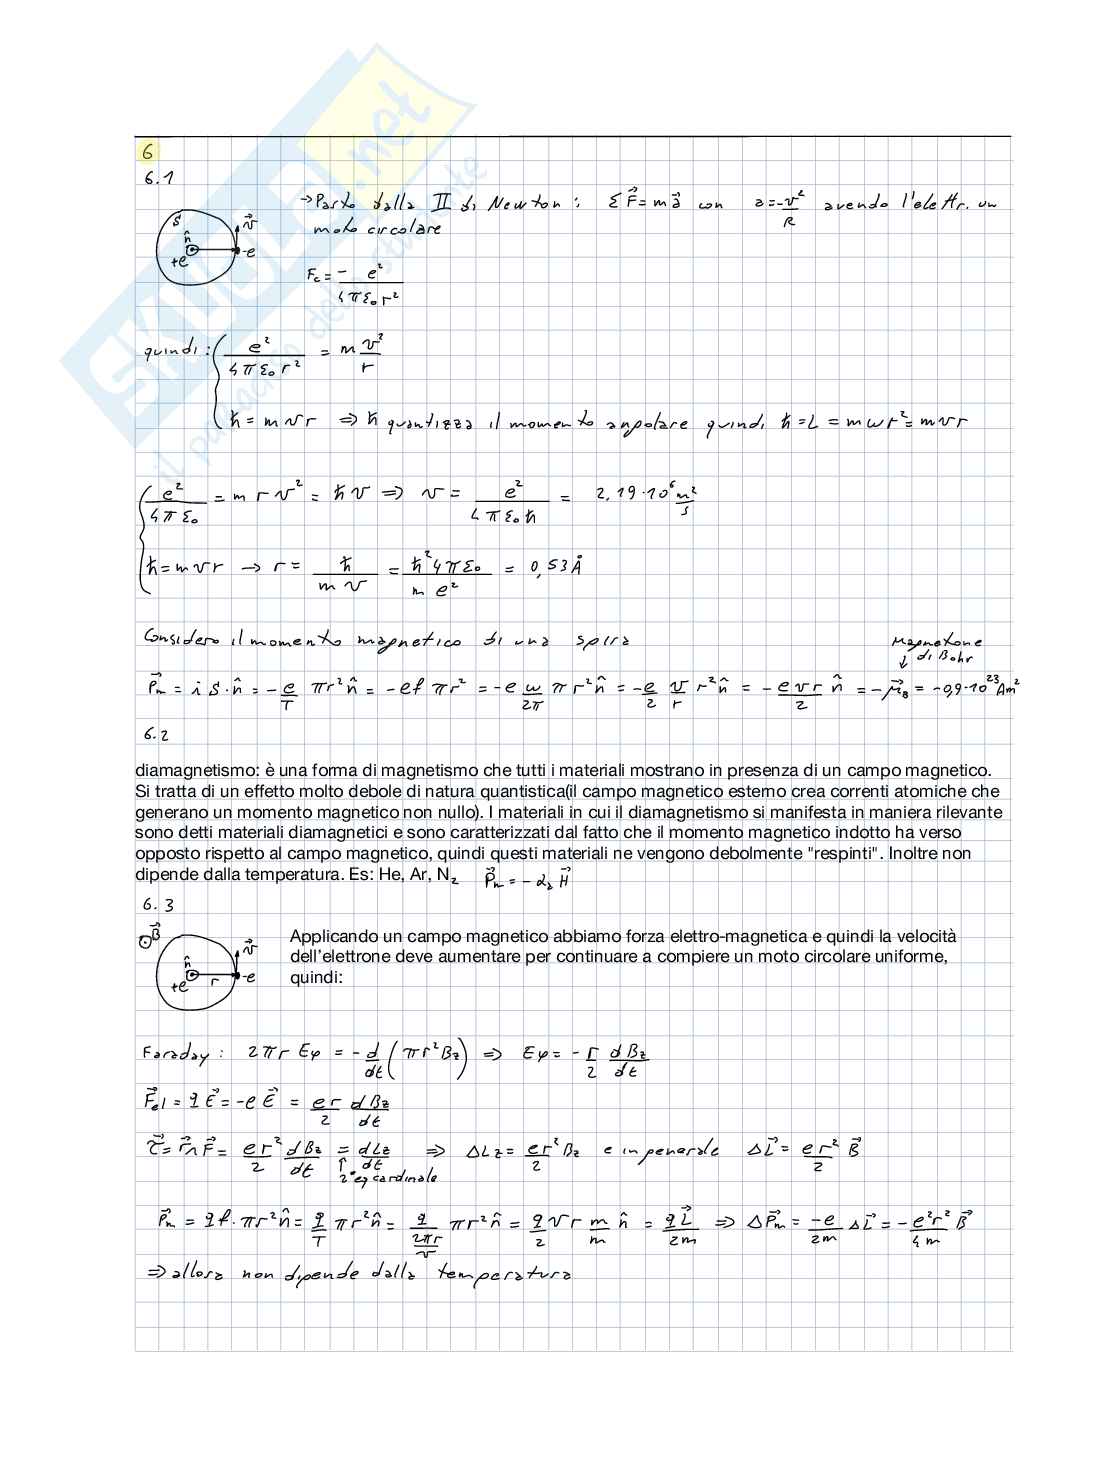 SKUOLA.net
il paradiso dello studente
6
6.1
→ Parto dalla II di Newton: Σ F⃗ = m a⃗ con a = -v²/R avendo l'elettr. un
moto circolare
S n̂ v⃗ +e -e
Fc = - e²/(4πε₀r²)
quindi: { e²/(4πε₀r²) = m v²/r
ℏ = m v r ⇒ ℏ quantizza il momento angolare quindi ℏ = L = m ω r² = m v r
{ e²/(4πε₀) = m r v² = ℏ v ⇒ v = e²/(4πε₀ℏ) = 2,19·10⁶ m²/s
ℏ = m v r → r = ℏ/(m v) = ℏ²4πε₀/(m e²) = 0,53 Å
Considero il momento magnetico di una spira
Magnetone
↓ di Bohr
P⃗m = i S·n̂ = -e/T πr² n̂ = -e f πr² = -e ω/2π π r² n̂ = -e/2 v/r r² n̂ = -evr/2 n̂ = -μ⃗B = -0,9·10²³ Am²
6.2
diamagnetismo: è una forma di magnetismo che tutti i materiali mostrano in presenza di un campo magnetico.
Si tratta di un effetto molto debole di natura quantistica(il campo magnetico esterno crea correnti atomiche che
generano un momento magnetico non nullo). I materiali in cui il diamagnetismo si manifesta in maniera rilevante
sono detti materiali diamagnetici e sono caratterizzati dal fatto che il momento magnetico indotto ha verso
opposto rispetto al campo magnetico, quindi questi materiali ne vengono debolmente "respinti". Inoltre non
dipende dalla temperatura. Es: He, Ar, N₂ P⃗m = -α H⃗
6.3
B⃗ n̂ v⃗ +e r -e
Applicando un campo magnetico abbiamo forza elettro-magnetica e quindi la velocità
dell'elettrone deve aumentare per continuare a compiere un moto circolare uniforme,
quindi:
Faraday: 2πr Eφ = -d/dt (πr² Bz) ⇒ Eφ = -r/2 dBz/dt
F⃗el = q E⃗ = -e E⃗ = er/2 dBz/dt
τ⃗ = r⃗ ∧ F⃗ = er²/2 dBz/dt = dLz/dt ⇒ ΔLz = er²/2 Bz e in generale ΔL⃗ = er²/2 B⃗
↑ 2ª eq cardinale
P⃗m = q f·πr² n̂ = q/T πr² n̂ = q/(2πr/v) πr² n̂ = q/2 v r m/m n̂ = qL⃗/2m ⇒ ΔP⃗m = -e/2m ΔL⃗ = -e²r²/4m B⃗
⇒ allora non dipende dalla temperatura